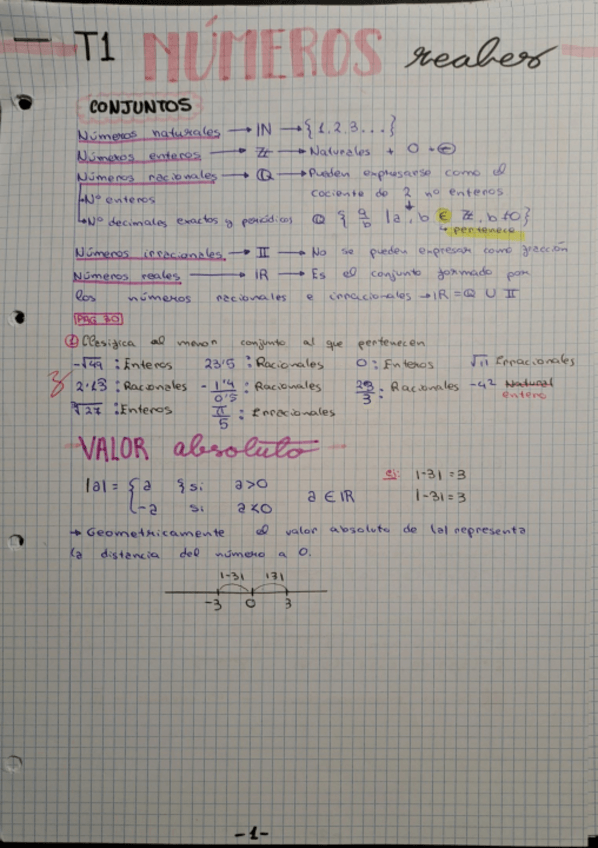 T1 NÚMEROS reales
CONJUNTOS
Números naturales → IN → {1,2,3...}
Números enteros → Z → Naturales + 0 + ⊖
Números racionales → Q → Pueden expresarse como el
cociente de 2 nº enteros
Nº enteros
Nº decimales exactos y periódicos Q { a/b | a, b ∈ Z, b ≠ 0}
pertenece
Números irracionales → II → No se pueden expresar como fracción
Números reales → IR → Es el conjunto formado por
los números racionales e irracionales → IR = Q U II
PAG 30
① Clasifica al menor conjunto al que pertenecen
-√49 : Enteros 23'5 : Racionales 0 : Enteros √11 Irracionales
2'23 : Racionales -1'4/0'5 : Racionales 29/3 : Racionales -42 Natural
entero
∛27 : Enteros π/5 : Irracionales
VALOR absoluto
|a| = { a si a>0 ej: |-3| = 3
-a si a<0 a ∈ IR |-3| = 3
→ Geometricamente el valor absoluto de |a| representa
la distancia del número a 0.
|-3| |3|
-3 0 3
-1-